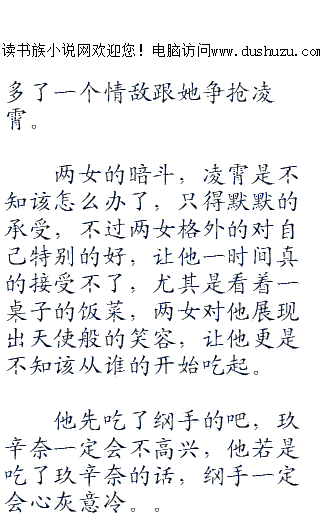 读书族小说网欢迎您！电脑访问www.dushuzu.com
多了一个情敌跟她争抢凌
霄。
两女的暗斗，凌霄是不
知该怎么办了，只得默默的
承受，不过两女格外的对自
己特别的好，让他一时间真
的接受不了，尤其是看着一
桌子的饭菜，两女对他展现
出天使般的笑容，让他更是
不知该从谁的开始吃起。
他先吃了纲手的吧，玖
辛奈一定会不高兴，他若是
吃了玖辛奈的话，纲手一定
会心灰意冷。。